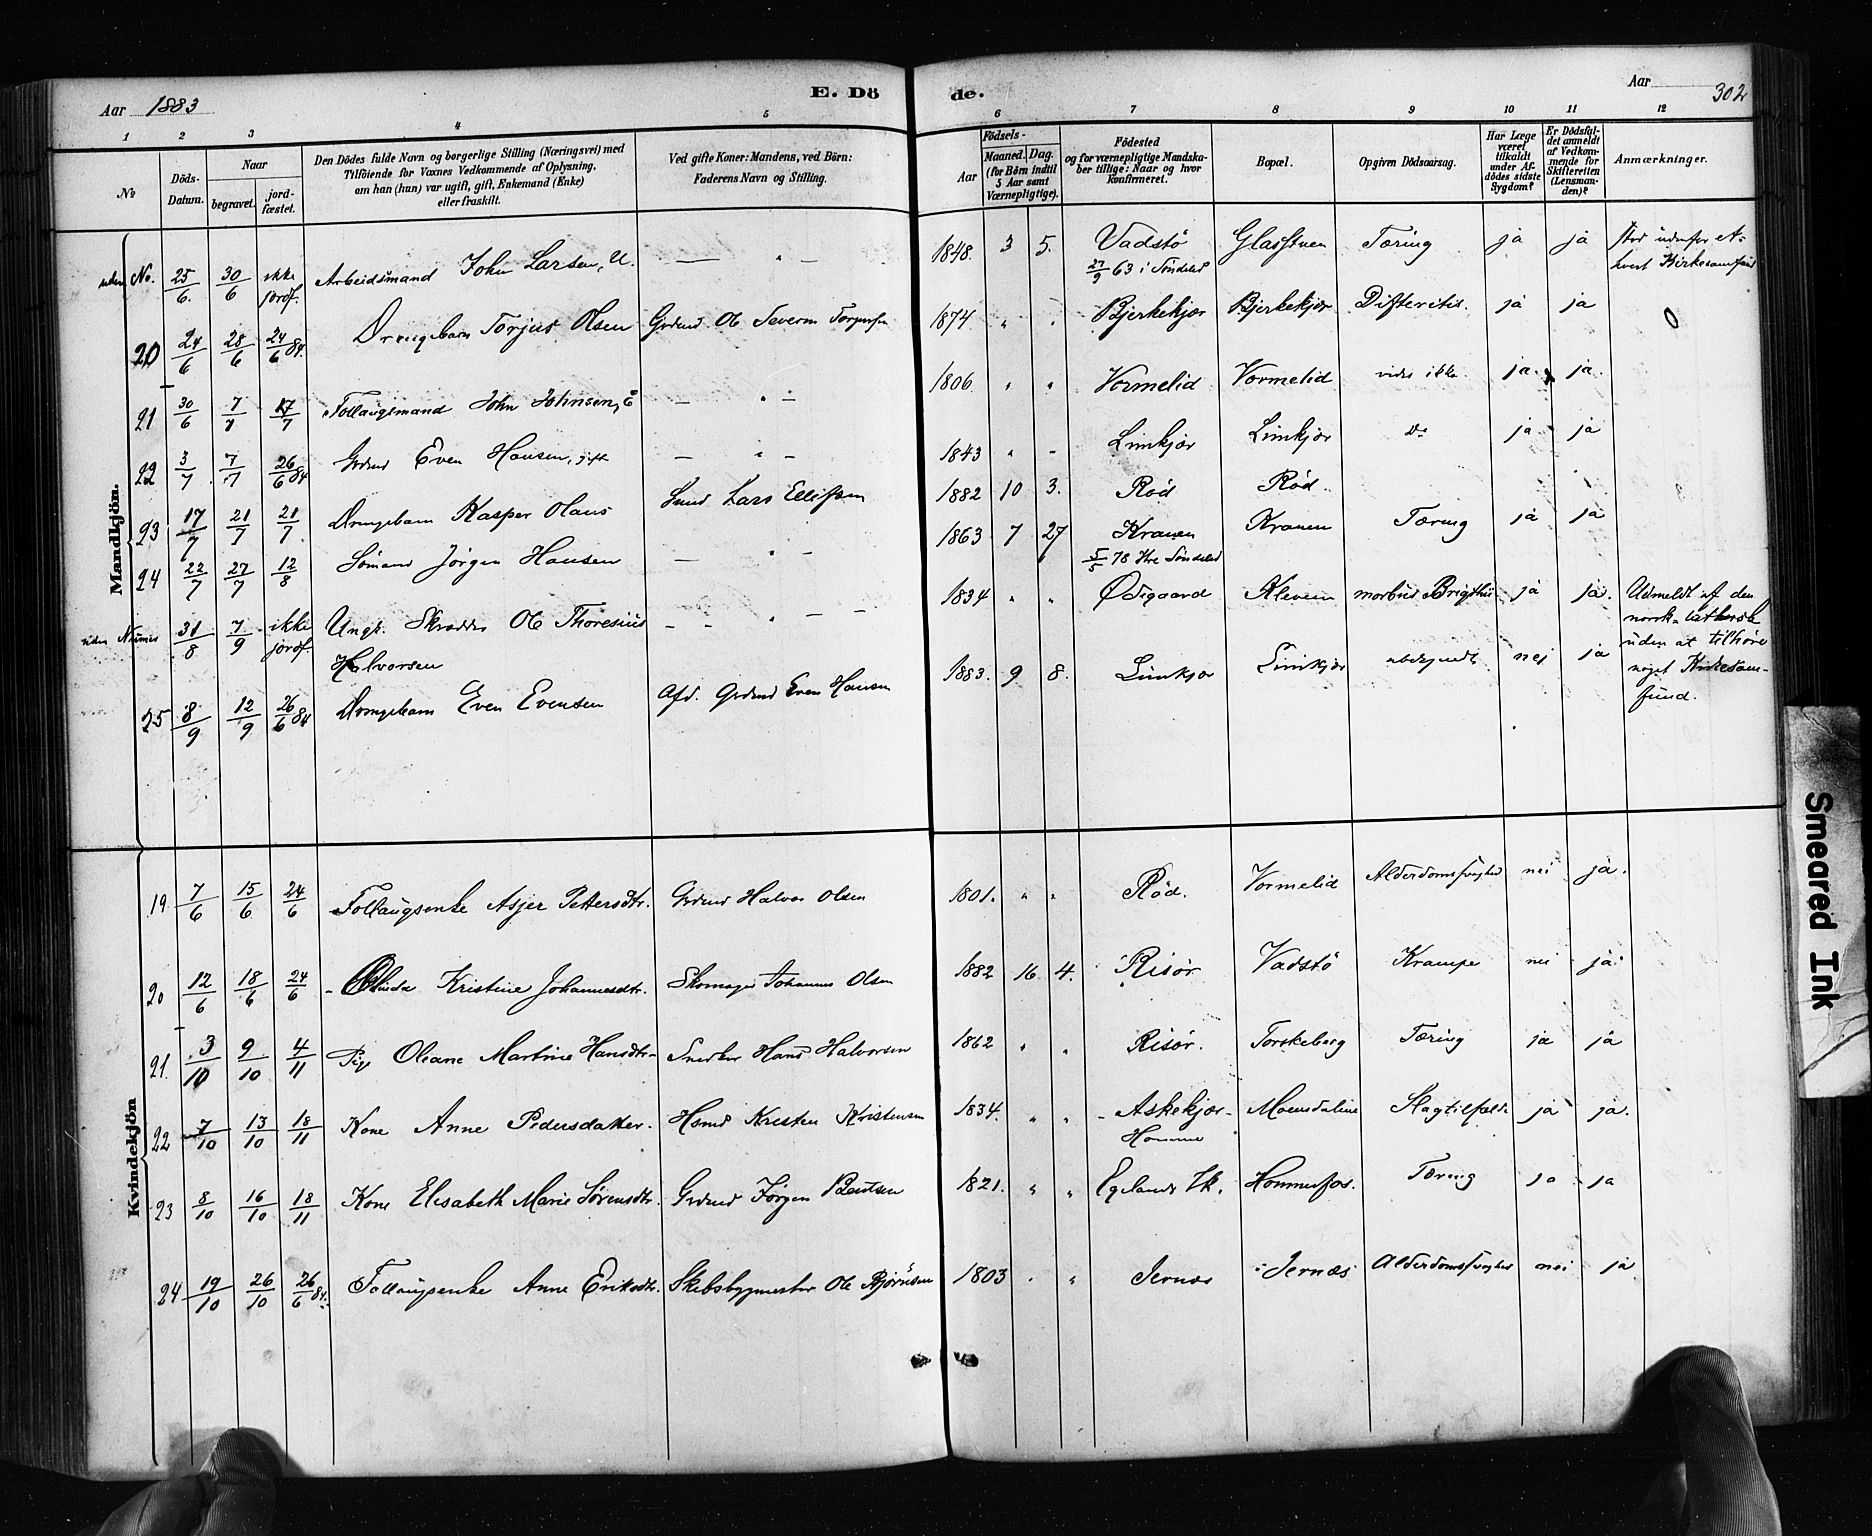 Aar 1883 E. Dö de. Aar 302
1 2 3 4 5 6 7 8 9 10 11 12
№ Döds-Datum. Naar begravet. jord-fæstet. Den Dödes fulde Navn og borgerlige Stilling (Næringsvei) med Tilföiende for Voxnes Vedkommende af Oplysning, om han (hun) var ugift, gift, Enkemand (Enke) eller fraskilt. Ved gifte Koner: Mandens, ved Börn: Faderens Navn og Stilling. Födsels- Aar Maaned. Dag. (for Börn indtil 5 Aar samt Værnepligtige). Födested og for værnepligtige Mandskaber tillige: Naar og hvor konfirmeret. Bopæl. Opgiven Dödsaarsag. Har Læge været tilkaldt under Afdödes sidste Sygdom? Er Dödsfaldet anmeldt af Vedkommende for Skifteretten (Lensmanden)? Anmærkninger.
Mandkjön.
uden No. 25/6. 30/6 ikke jordf. Arbeidsmand John Larsen, U. — " — 1848. 3 5. Vadstö 27/9 63 i Söndeled Glasstuen Tæring ja ja Stod udenfor et-hvert Kirkesamfund
20 24/6 28/6 24/6 84. Drengebarn Torjus Olsen Grdmd Ole Severin Torjusen 1874 " " Bjerkekjær Bjerkekjær Difteritis. ja ja 0
21 30/6 7/7 17/7 Follaugsmand John Johnsen, E — " — 1806 " " Vormelid Vormelid vides ikke. ja. ja.
22 3/7 7/7 26/6 84 Grdmd Even Hansen, gift — " — 1843 " " Limkjær Limkjær do ja ja
23 17/7 21/7 21/7 Drengebarn Kasper Olaus Lars Ellefsen 1882 10 3. Röd Röd.
24 22/7 27/7 12/8 Sömand Jörgen Hansen — " — 1863 7 27 Kranen 5/5 78 Söndeled Kranen Tæring ja ja
uden Numer 31/8 7/9 ikke jordf. Ungk. Skrædder Ole Thoresius Halvorsen — " — 1834 " " Ödegaard Kleven morbus Brigthii ja ja. Udmeldt af den norsk-luthersk uden at tilhöre noget Kirkesam-fund.
25 8/9 12/9 26/6 84 Drengebarn Even Evensen Afd. Grdmd Even Hansen 1883. 9 8. Limkjær Limkjær ubekjendt nei ja
Kvindekjön
19 7/6 15/6 24/6 Follaugsenke Asjer Pettersdtr. Grdmd Halvor Olsen 1801. " " Röd. Vormelid Alderdomssvaghed nei ja.
20 12/6 18/6 24/6 Kristine Johannesdtr. Skomager Johannes Olsen 1882 16 4. Risör Vadstö Krampe nei ja.
21. 3/10 9/10 4/11 Pige Oleane Martine Hansdtr. Snedker Hans Halvorsen 1862 " " Risör. Torskeberg Tæring ja ja
22 7/10 13/10 18/11 Kone Anne Pedersdatter. Hsmd Kristen Kristensen 1834. " " Askekjær-Homme Moensdalene Slagtilfælde ja ja.
23 8/10 16/10 18/11 Kone Elisabeth Marie Sörensdtr. Grdmd Jörgen Bentsen 1821. " " Egelands Vk. Hommefos. Tæring ja ja
24 19/10 26/10 26/6 84. Follaugsenke Anne Eriksdtr. Skibsbygmester Ole Björnsen 1803 " " Jernæs Jernæs Alderdomssvaghed nei ja
Smeared Ink